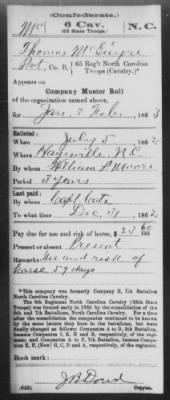 (Confederate.)
Mc 6 Cav. N.C.
(65 State Troops.)
Thomas McGuyre
Pvt, Co. B, 65 Reg't North Carolina Troops (Cavalry).*
Appears on
Company Muster Roll
of the organization named above,
for Jan & Feb, 1863
Enlisted:
When July 5, 186
Where Haysville N.C.
By whom William P Moore
Period 3 years
Last paid:
By whom Capt Cate
To what time Dec 31, 1862
Pay due for use and risk of horse, $23 60/100
Present or absent Present
Remarks: Use and risk of
horse 59 days
*This company was formerly Company B, 7th Battalion
North Carolina Cavalry.
The 6th Regiment North Carolina Cavalry (65th State
Troops) was formed in 1862 by the consolidation of the
5th and 7th Battalions, North Carolina Cavalry. For some
time after the consolidation the companies continued to be known
by the same letters they bore in the battalions, but were
finally changed as follows: Companies
Book mark:
(642) J.B. Dowd
Copyist.